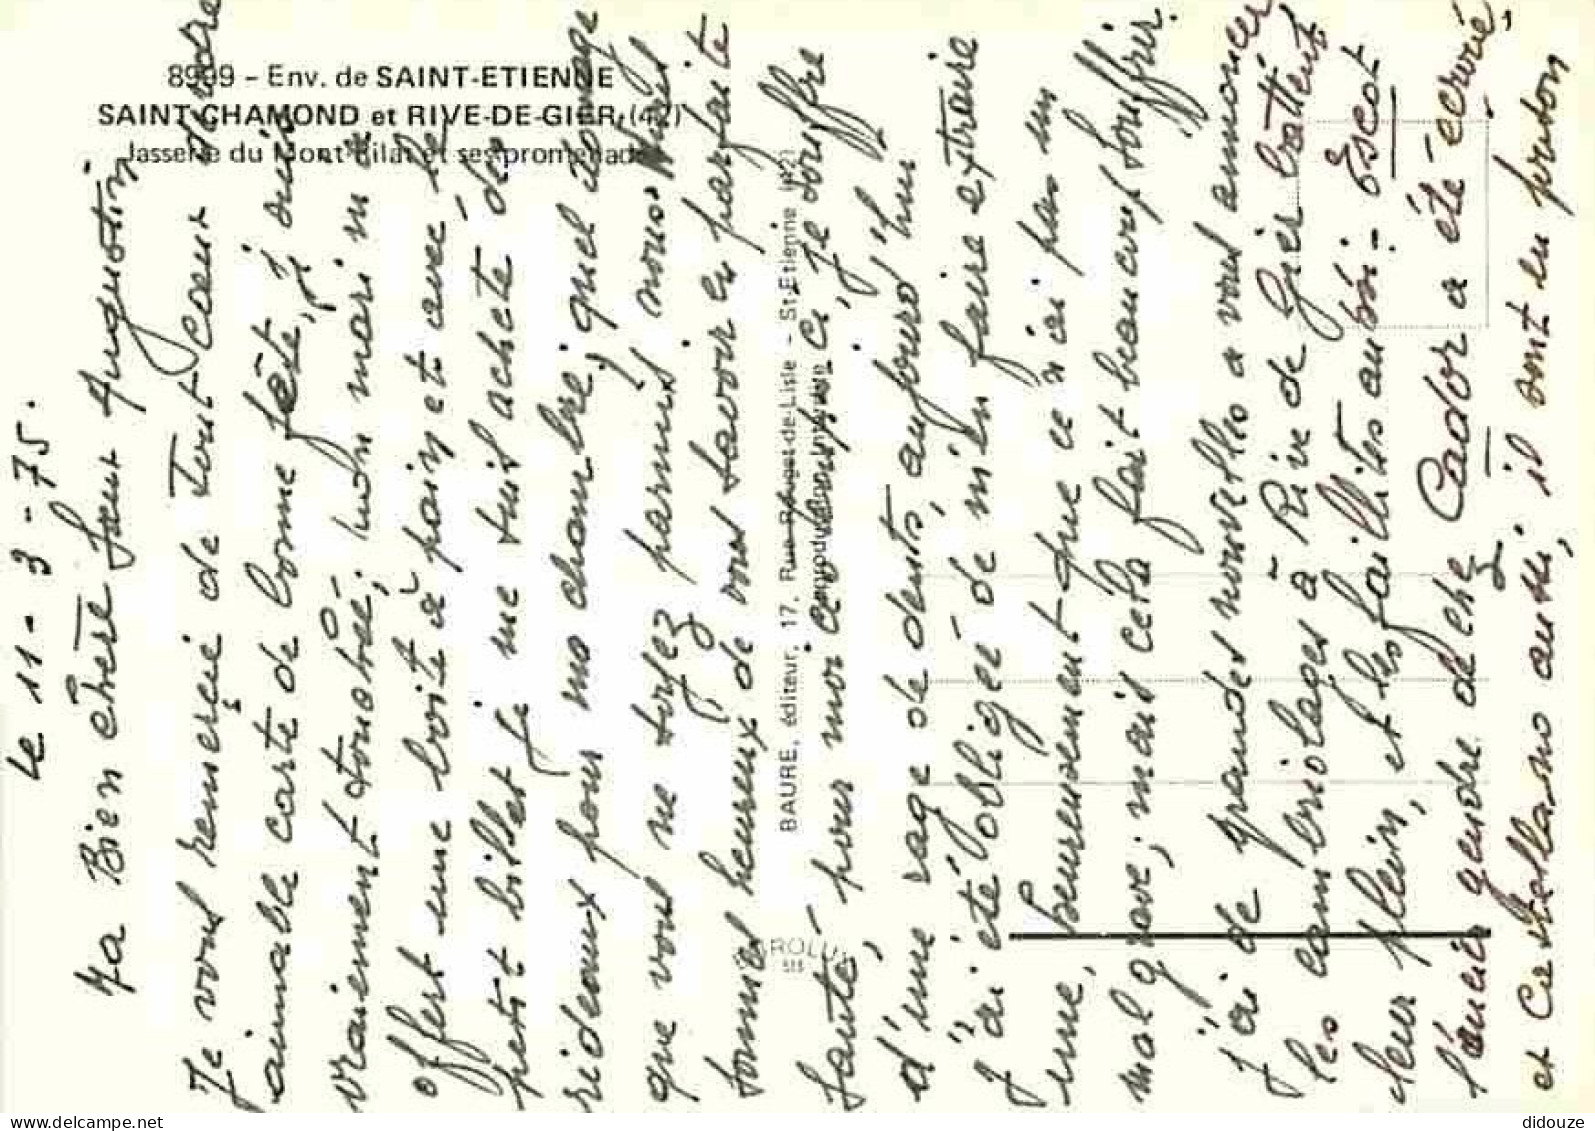 8999 - Env. de SAINT-ETIENNE
SAINT-CHAMOND et RIVE-DE-GIER (42)
Jasserie du Mont Pilat et ses promenades
BAURE, éditeur, 17, Rue Rouget-de-Lisle - St-Etienne (42)
le 11 - 3 - 75.
Ma Bien chère Sœur Augustin
Je vous remercie de tout cœur votre
aimable carte de bonne fête, j'suis
vraiment touchée; mon mari m'a
offert une boite à pain et avec le
petit billet je me suis acheté des
rideaux pour ma chambre, quel dommage
que vous ne soyez parmis nous. Nous
sommes heureux de vous savoir en parfaite
santé, pour moi ce temps ci, je souffre
d'une rage de dents, aujourd'hui
j'ai été obligée de m'en faire extraire
une, heureusement que ce n'ai pas un
mal grave; mais cela fait beaucoup souffrir.
J'ai de grandes nouvelles a vous annoncer
les cambriolages à Rive de Gier battent
leur plein, et les faillites aussi - Escot
l'ancien gendre de chez Cador a été écroué,
et Castellano aussi, il sont en prison
didouze